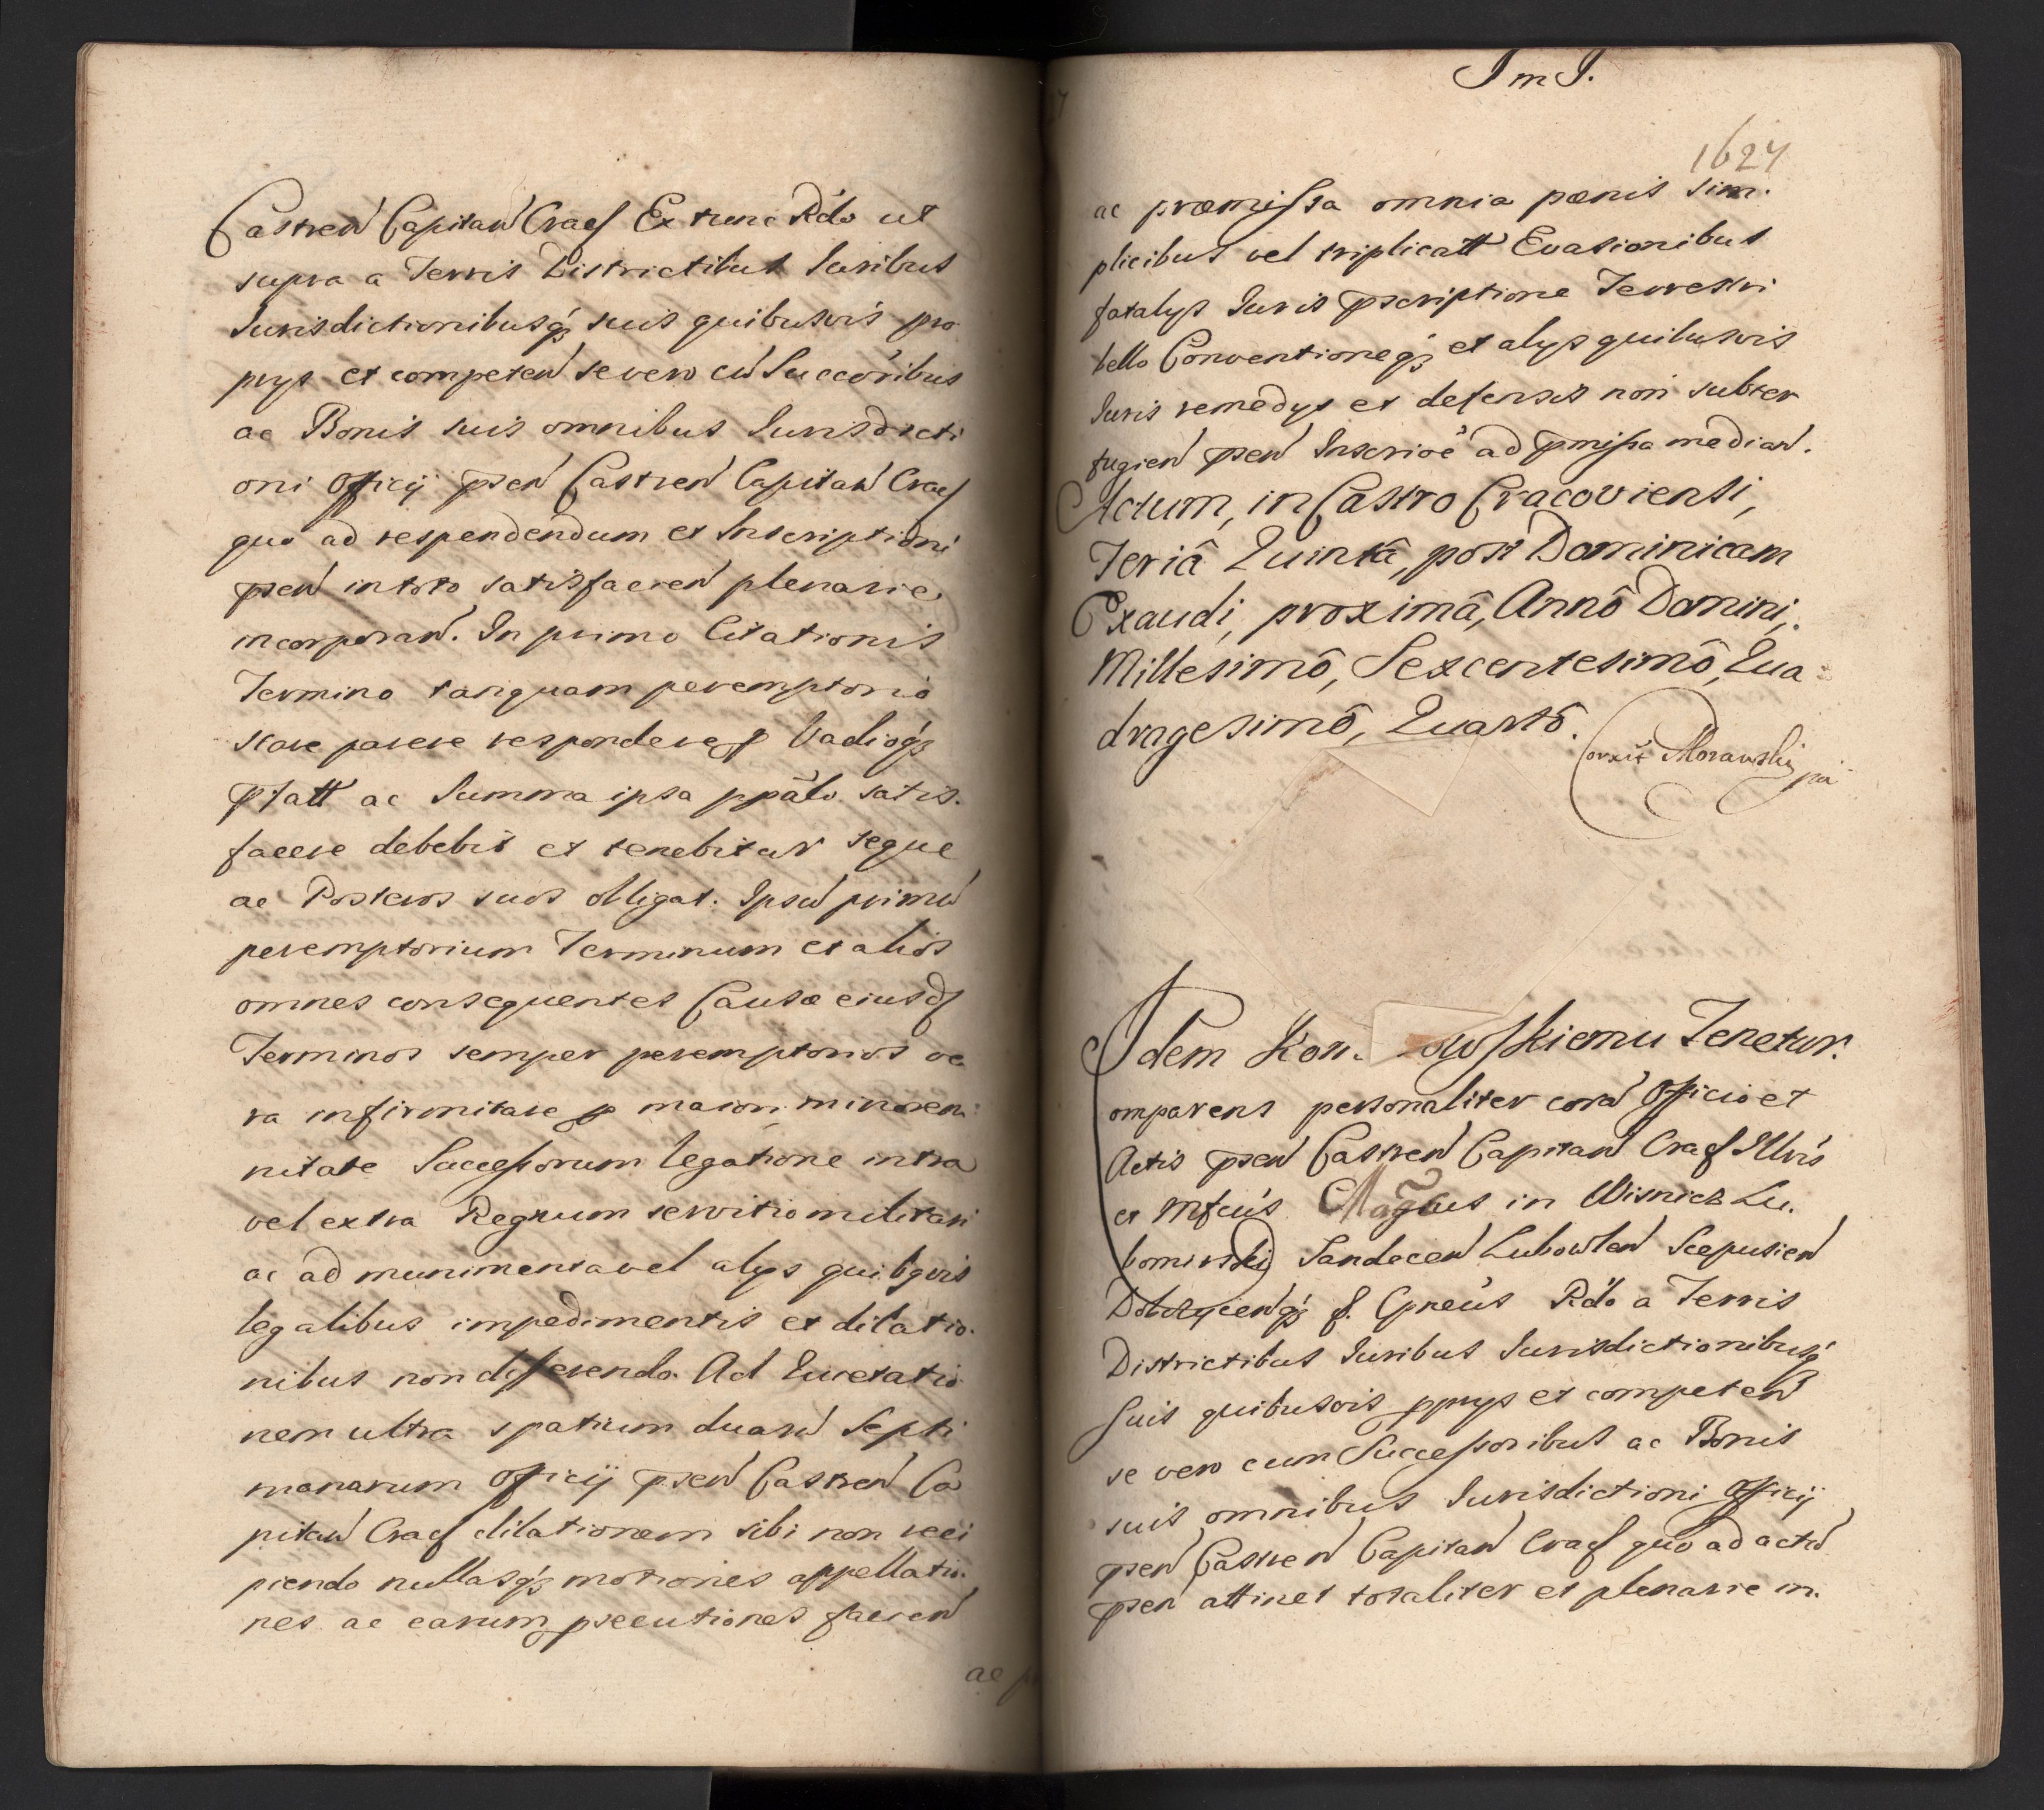 Castren Capitan Cracf Ex tunc Rdo ut
supra a Terris Districtibus Iuribus
Iurisdictionibusq3 suis quibusvis pro
prys et competen se vero cu Succoribus
ac Bonis suis omnibus Iurisdicti
oni Officij psen Castren Capitan Cracf
quo ad respondendum et Inscriptioni
psen in toto satisfacien plenarie
incorporan. In primo Citationis
Termino tanquam peremptorio
stare parere respondere p Vadioq3
ptatt ac Summa ipsa ppali satis.
facere debebit et tenebitur seque
ac Posteros suos obligat. Ipsu primu
peremptorium Terminum et alios
omnes consequentes Causæ eiusdf
Terminos semper peremptorios ve
ra infirmitate p maiori minoren
nitate Successorum legatione intra
vel extra Regnum servitio militari
ac ad munimenta vel alys quibqvis
legalibus impedimentis et dilatio.
nibus non differendo. Ad Quietatio
nem ultra spatium duaru Septi
manarum Officij psen Castren Ca
pitan Cracf dilationem sibi non reci
piendo nullasq3 motiones appellatio.
nes ac earum psecutiones facien
ac
I m I.
1627
ac præmissa omnia pænis sim.
plicibus vel triplicatt Evasionibus
fatalys Iuris pscriptione Terrestri
bello Conventioneq3 et alys quibusvis
Iuris remedys et defensis non subter
fugien psen Inscrioe ad pmissa median.
Actum, in Castro Cracoviensi,
Feriâ Quintâ, post Dominicam
Exaudi, proximâ, Annô Domini,
Millesimô, Sexcentesimô, Qua
dragesimô, Quartô.
Corxit Morawski
Idem Kon. owskiemu Tenetur.
omparens personaliter cora Officio et
Actis psen Castren Capitan Cracf Illris
et Mfcus in Wisnicz Lu.
bomirski Sandecen Lubowlen Scepusien
Dobczycenq3 f. Gpneus Rdo a Terris
Districtibus Iuribus Iurisdictionibusq
suis quibusvis pprys et competen
se vero cum Successoribus ac Bonis
suis omnibus Iurisdictioni Officij
psen Castren Capitan Cracf quo ad actu
psen attinet totaliter et plenarie in.